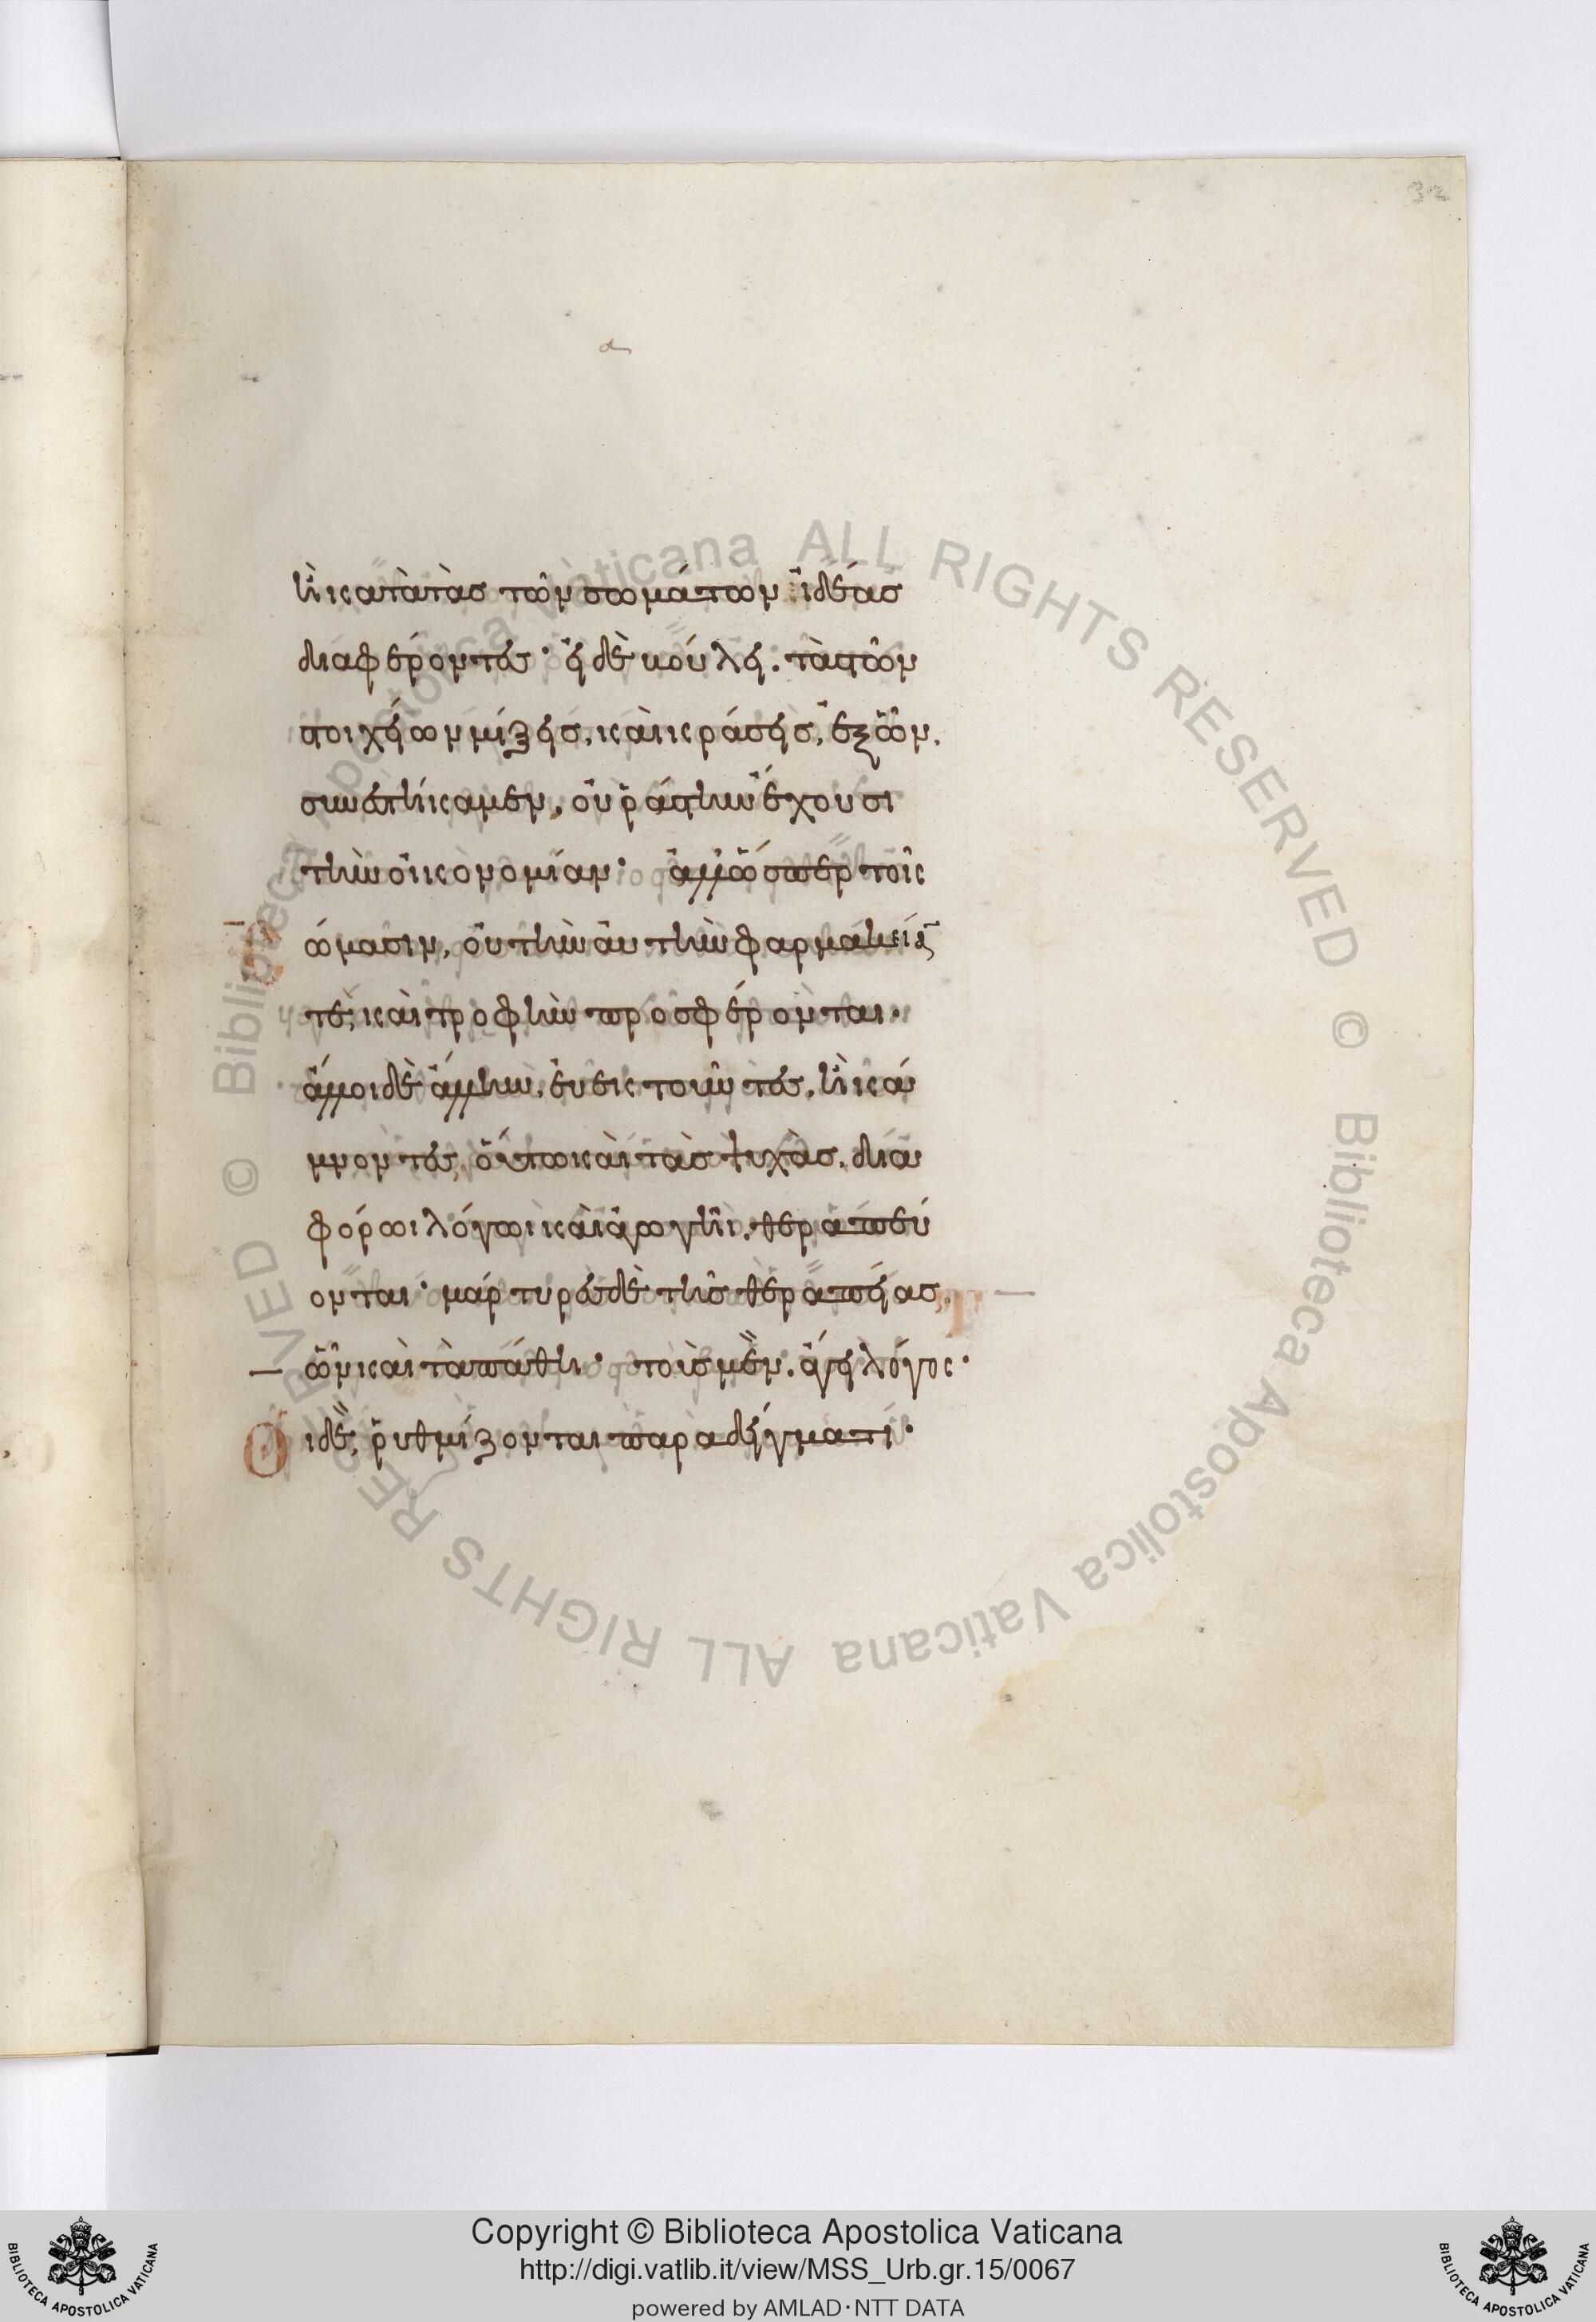 32
α
ἢ κατὰ τὰς τῶν σωμάτων ἰδέας
διαφέροντες· εἰ δὲ βούλει. τὰς τῶν
στοιχείων μίξεις, καὶ κράσεις, ἐξ ὧν.
συνεστήκαμεν, οὐ ῥάστην ἔχουσι
τὴν οἰκονομίαν· ἀλλ' ὥσπερ τοῖς
σώμασιν, οὐ τὴν αὐτὴν φαρμακείαν
τε, καὶ τροφὴν προσφέρονται·
ἄλλοι δὲ ἄλλην, εὐεκτοῦντες, ἢ κά
μνοντες, οὕτω καὶ τὰς ψυχὰς. δια
φόρωι λόγωι καὶ ἀγωγῆι. θεραπεύ
ονται· μάρτυρες δὲ τῆς θεραπείας,
ὧν καὶ τὰ πάθη· τοὺς μὲν. ἄγει λόγος·
Οἱ δὲ, ῥυθμίζονται παραδείγματι·
Copyright © Biblioteca Apostolica Vaticana
http://digi.vatlib.it/view/MSS_Urb.gr.15/0067
powered by AMLAD·NTT DATA
BIBLIOTECA APOSTOLICA VATICANA
BIBLIOTECA APOSTOLICA VATICANA
© Biblioteca Apostolica Vaticana ALL RIGHTS RESERVED
© Biblioteca Apostolica Vaticana ALL RIGHTS RESERVED